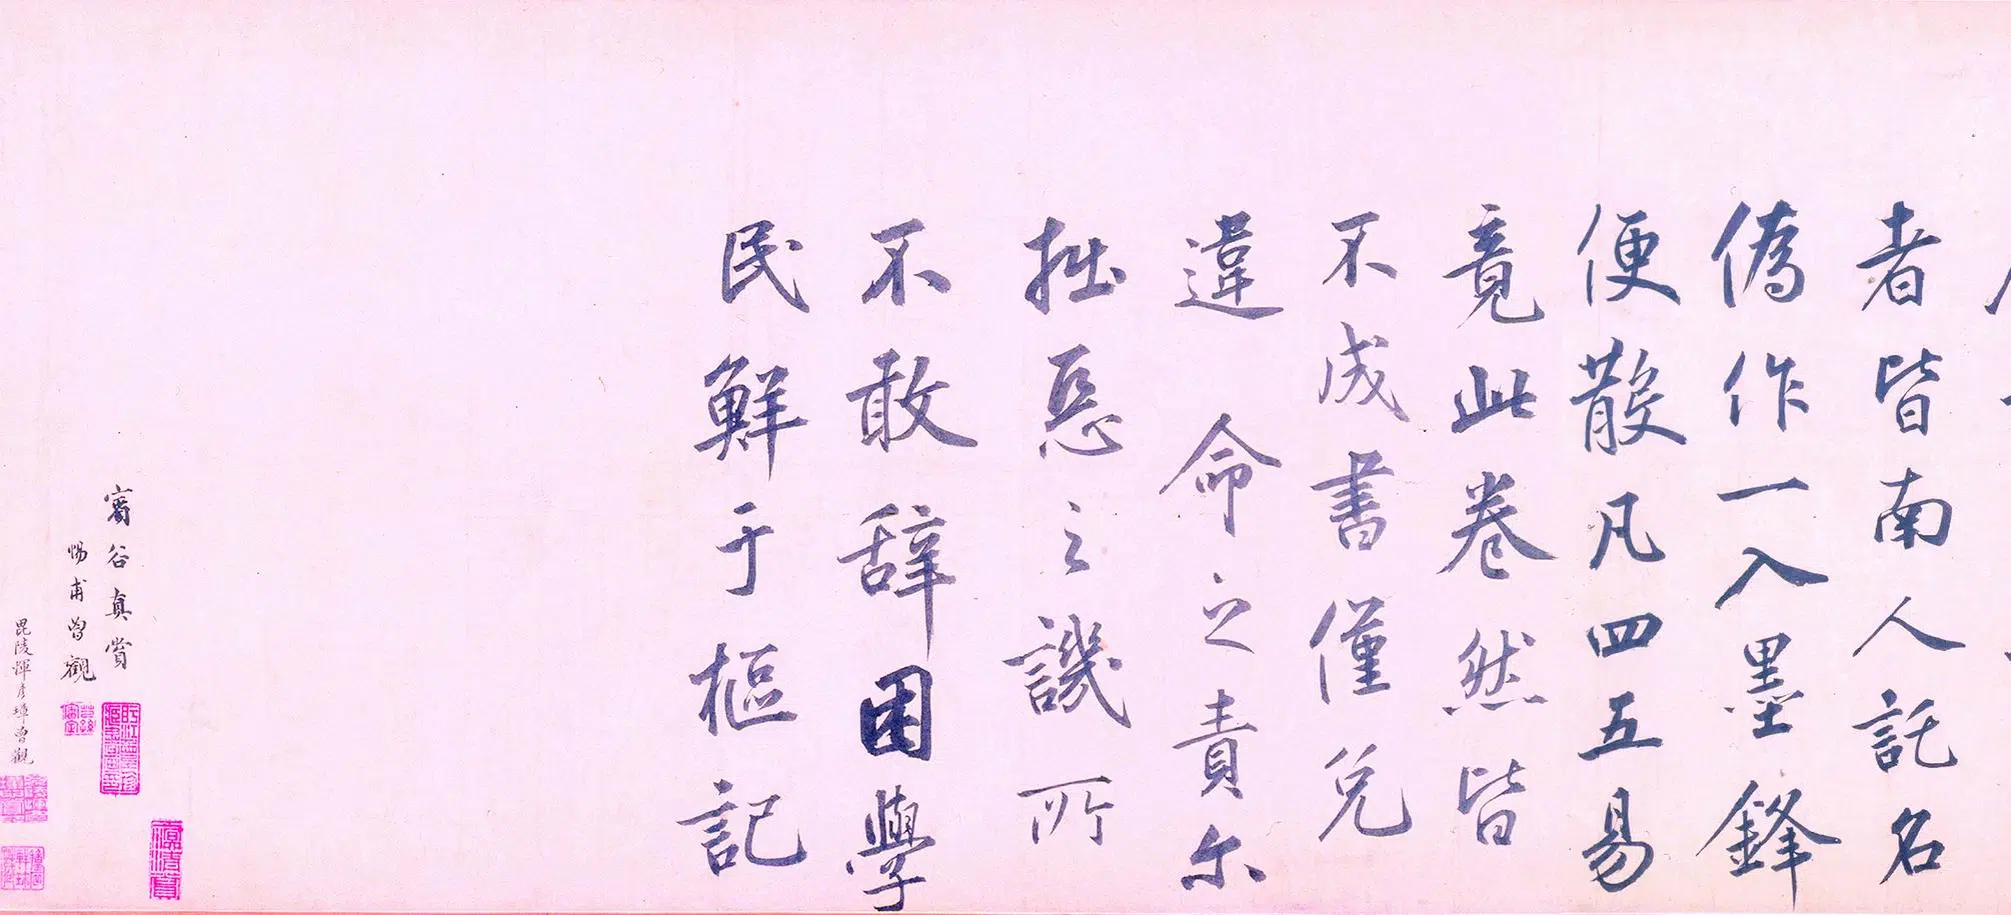 者皆南人託名
偽作一入墨鋒
便散凡四五易
竟此卷然皆
不成書僅免
違命之責尔
拙惡之譏所
不敢辞困學
民鮮于樞記
甯谷真賞
惕甫曾觀
毘陵惲彦璋曾觀